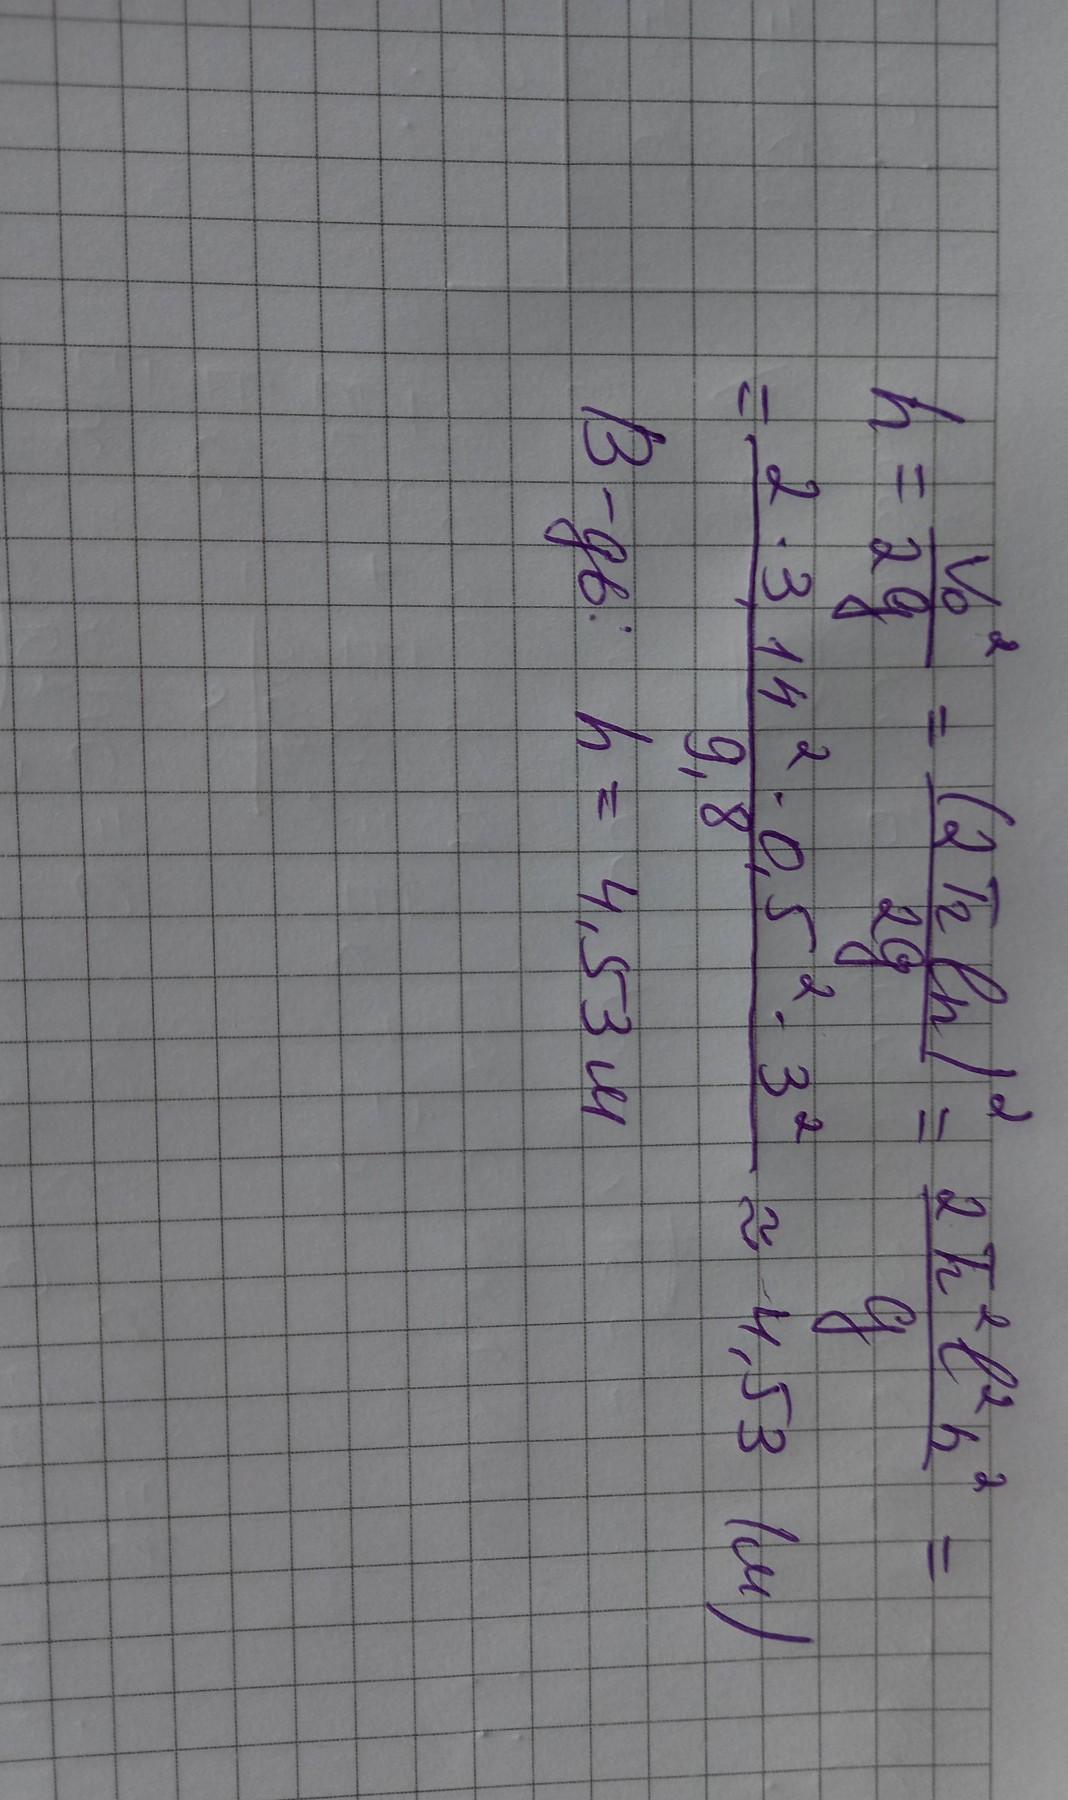 h = V₀²/2g = (2πln)²/2g = 2π²l²n²/g =
= 2·3,14²·0,5²·3²/9,8 ≈ 4,53 (м)
В-дь: h = 4,53 м